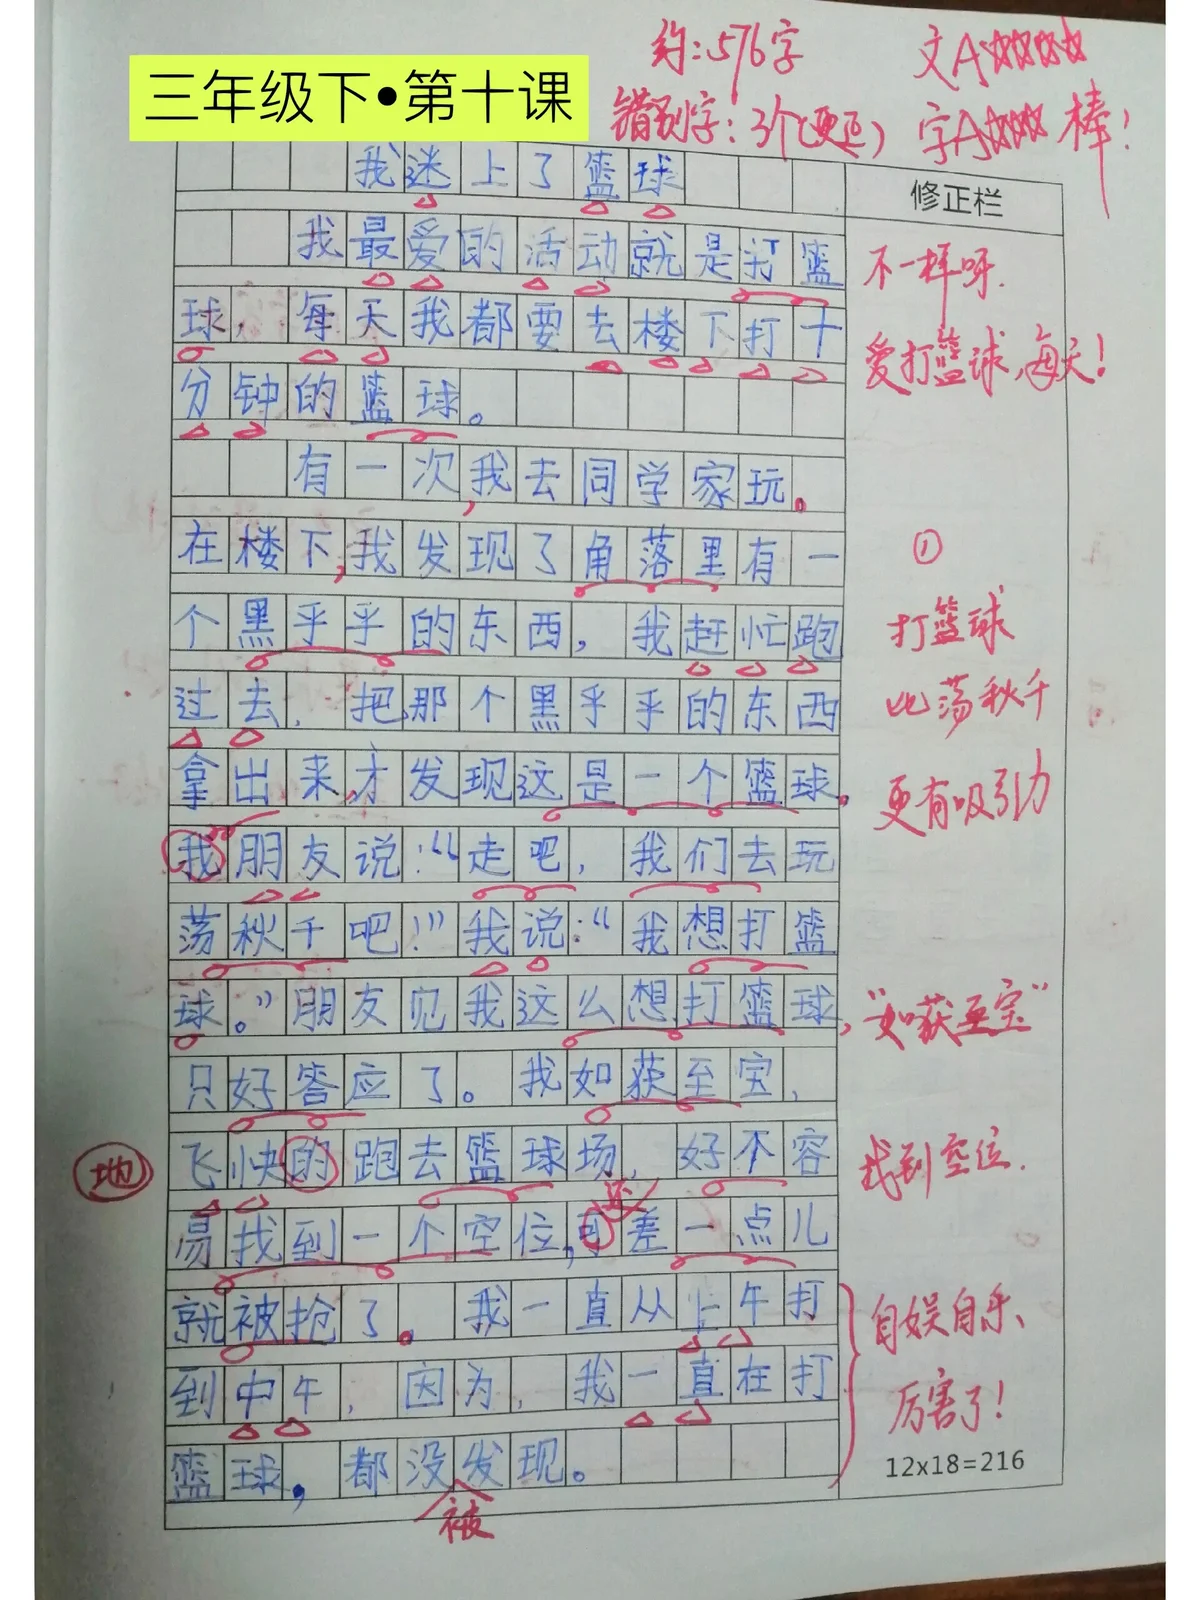 约:576字
文A☆☆☆☆
三年级下•第十课
错别字:3个(更正)
字A☆☆☆ 棒!
我迷上了篮球
修正栏
我最爱的活动就是打篮
不一样呀.
球,每天我都要去楼下打十
爱打篮球,每天!
分钟的篮球。
有一次,我去同学家玩。
在楼下,我发现了角落里有一
①
个黑乎乎的东西,我赶忙跑
打篮球
过去,把那个黑乎乎的东西
比荡秋千
拿出来,才发现这是一个篮球。
更有吸引力
我朋友说:“走吧,我们去玩
荡秋千吧!”我说:“我想打篮
球。”朋友见我这么想打篮球,
“如获至宝”
只好答应了。我如获至宝,
飞快的跑去篮球场,好不容
地
找到空位.
易找到一个空位,可差一点儿
还
就被抢了。我一直从上午打
自娱自乐、
到中午,因为,我一直在打
厉害了!
篮球,都没发现。
被
12x18=216